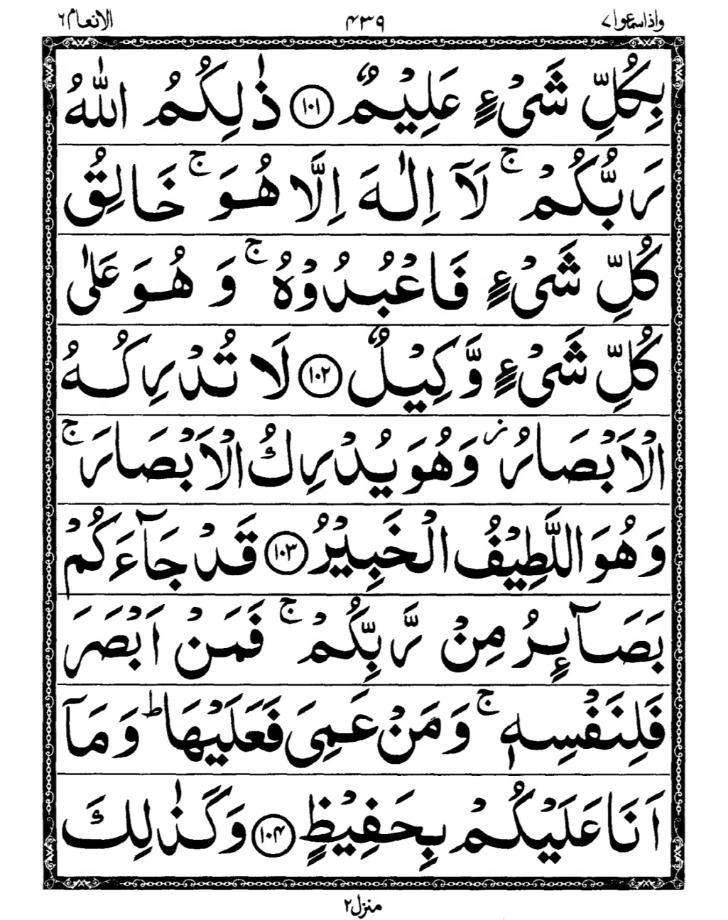 واذاسمعوا ٧ ۴۳۹ الانعام ٦
بِكُلِّ شَىْءٍ عَلِيْمٌ ۝١٠١ ذٰلِكُمُ اللّٰهُ
رَبُّكُمْ ۚ لَاۤ اِلٰهَ اِلَّا هُوَ ۚ خَالِقُ
كُلِّ شَىْءٍ فَاعْبُدُوْهُ ۚ وَ هُوَ عَلٰى
كُلِّ شَىْءٍ وَّكِيْلٌ ۝١٠٢ لَا تُدْرِكُهُ
الْاَبْصَارُ ز وَهُوَ يُدْرِكُ الْاَبْصَارَ ۚ
وَهُوَ اللَّطِيْفُ الْخَبِيْرُ ۝١٠٣ قَدْ جَآءَكُمْ
بَصَآئِرُ مِنْ رَّبِّكُمْ ۚ فَمَنْ اَبْصَرَ
فَلِنَفْسِهٖ ۚ وَمَنْ عَمِىَ فَعَلَيْهَا ؕ وَمَاۤ
اَنَا عَلَيْكُمْ بِحَفِيْظٍ ۝١٠۴ وَكَذٰلِكَ
منزل ٢